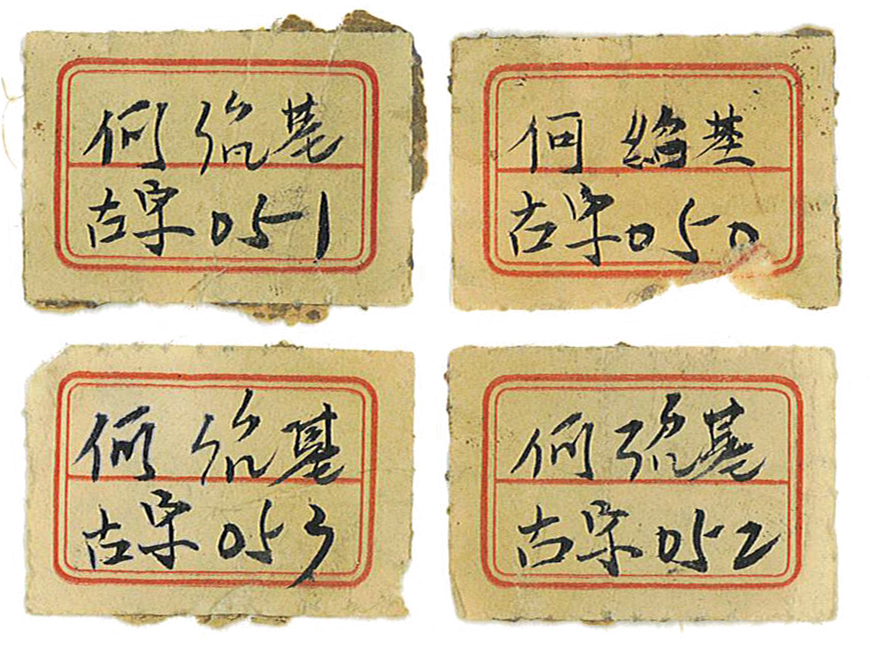 何绍基
古字051
何绍基
古字050
何绍基
古字053
何绍基
古字052